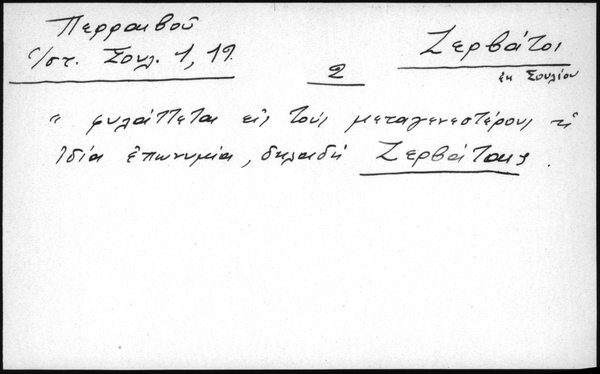 Περραιβού
Ἱστ. Σουλ. 1, 19.
Ζερβάτοι
ἐκ Σουλίου
2
" φυλάττεται εἰς τοὺς μεταγενεστέρους ἡ
ἰδία ἐπωνυμία, δηλαδή Ζερβάτοις.